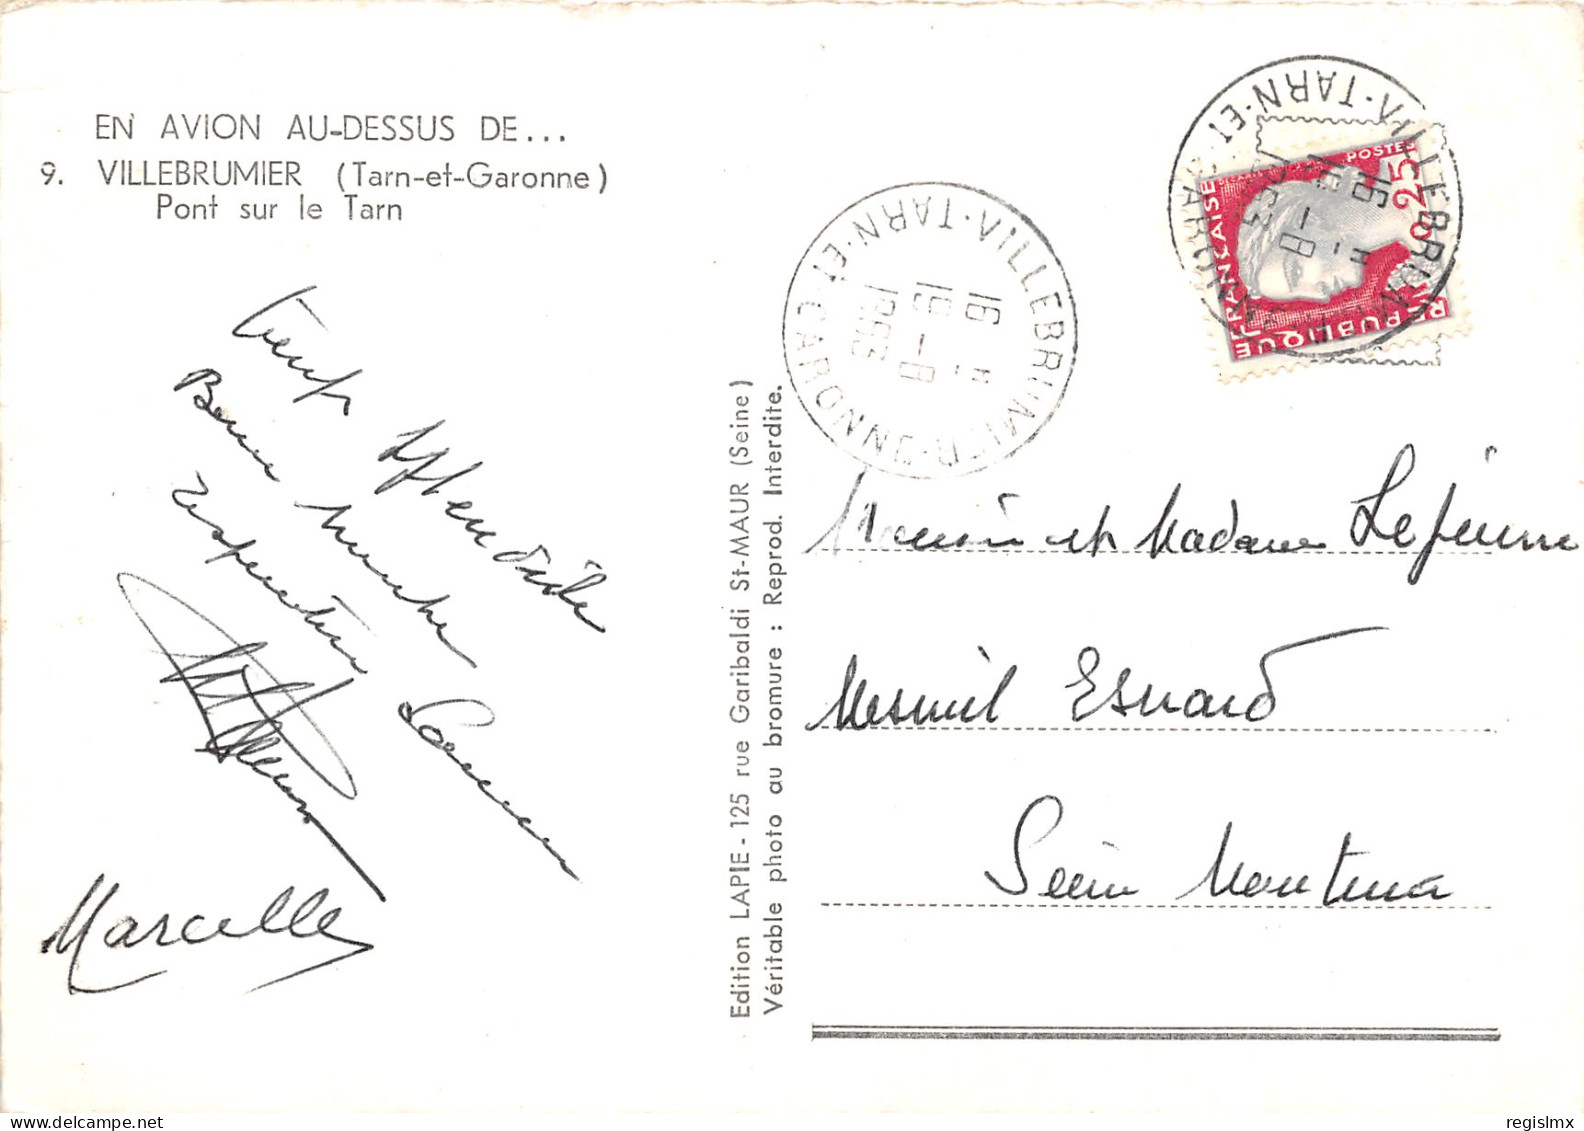 EN AVION AU-DESSUS DE...
9. VILLEBRUMIER (Tarn-et-Garonne)
Pont sur le Tarn
Temps splendide
Marcelle
Edition LAPIE - 125 rue Garibaldi St-MAUR (Seine)
Véritable photo au bromure : Reprod. Interdite.
VILLEBRUMIER · TARN-ET-GARONNE
16 H
19 - 8
1963
VILLEBRUMIER · TARN-ET-GARONNE
16 H
19 - 8
1963
POSTES
0,25
REPUBLIQUE FRANÇAISE
Monsieur et Madame Lejeune
Mesnil Esnard
Seine Maritime
regislmx